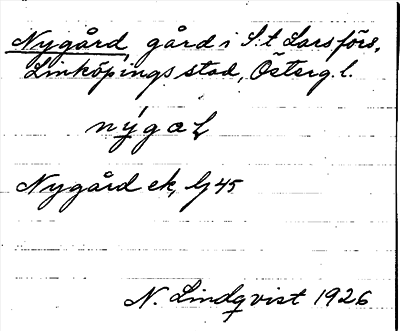 Nygård, gård i S:t Lars förs,
Linköpings stad, Österg. l.
Nygård ek, 45
N. Lindqvist 1926